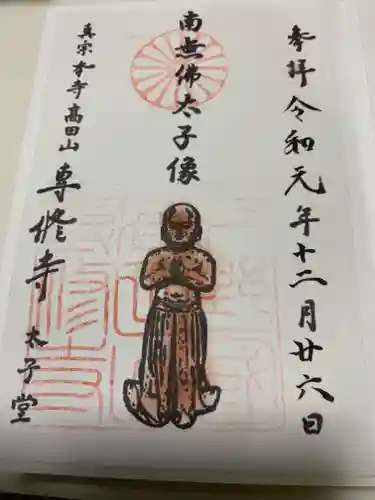 参拝令和元年十二月廿六日
南無佛太子像
真宗本寺高田山
専修寺
太子堂